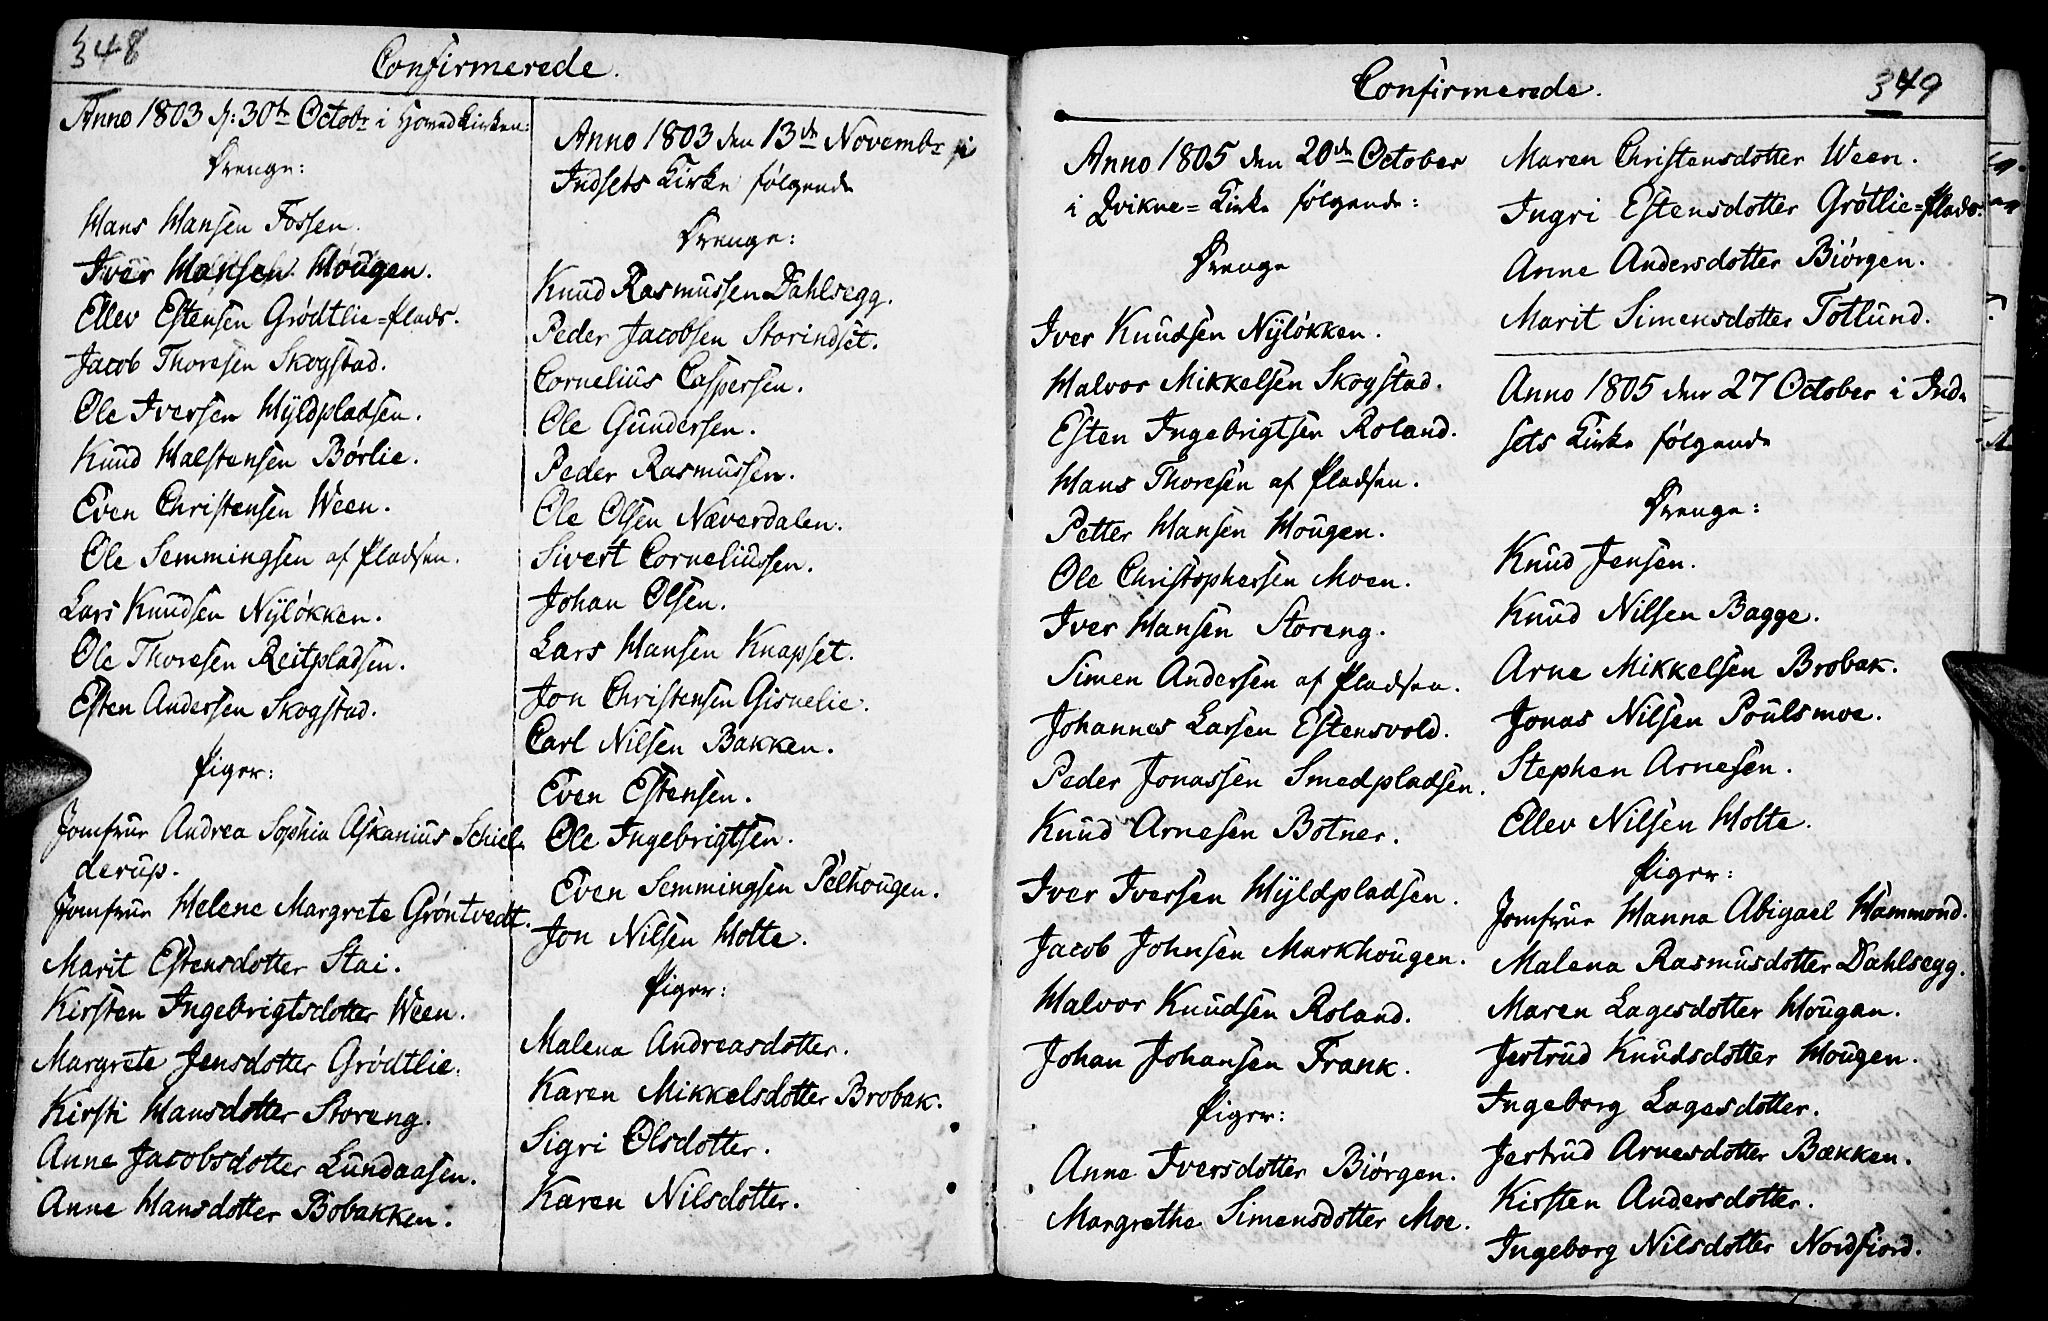 348
Confirmerede.
Anno 1803 d: 30te Octobr i Hovedkirken:
Drenge:
Hans Hansen Fossen.
Iver Hansen Hougen.
Ellev Estensen Grødtlie=plads.
Jacob Thoresen Skogstad.
Ole Iversen Hÿldpladsen.
Knud Halstensen Børlie.
Even Christensen Ween.
Ole Semmingsen af Pladsen.
Lars Knudsen Nÿløkken.
Ole Thoresen Reitpladsen.
Esten Andersen Skogstad.
Piger:
Jomfrue Andrea Sophia Askanius Schiel-
derup.
Jomfrue Helene Margrete Grøntvedt.
Marit Estensdotter Stai.
Kirsten Ingebrigtsdotter Ween.
Margrete Jensdotter Grødtlie.
Kirsti Hansdotter Storeng.
Anne Jacobsdotter Lundaasen.
Anne Hansdotter Bobakken.
Anno 1803 den 13de Novembr i
Indsets Kirke følgende
Drenge:
Knud Rasmussen Dahlsegg.
Peder Jacobsen Storindset.
Cornelius Caspersen.
Ole Gundersen.
Peder Rasmussen.
Ole Olsen Næverdalen.
Sivert Corneliussen.
Johan Olsen.
Lars Hansen Knapset.
Jon Christensen Gisnelie.
Carl Nilsen Bakken.
Even Estensen.
Ole Ingebrigtsen.
Even Semmingsen Pelhougen.
Jon Nilsen Holte.
Piger:
Malena Andreasdotter.
Karen Mikkelsdotter Brobak.
Sigri Olsdotter.
Karen Nilsdotter.
Confirmerede.
349
Anno 1805 den 20de October
i Qvikne=Kirke følgende:
Drenge
Iver Knudsen Nÿløkken.
Halvor Mikkelsen Skogstad.
Esten Ingebrigtsen Roland.
Hans Thoresen af Pladsen.
Petter Hansen Hougen.
Ole Christophersen Moen.
Iver Hansen Storeng.
Simen Andersen af Pladsen.
Johannes Larsen Estensvold.
Peder Jonassen Smedpladsen.
Knud Arnesen Botner.
Iver Iversen Hÿldpladsen.
Jacob Johnsen Markhougen.
Halvor Knudsen Roland.
Johan Johansen Frank.
Piger:
Anne Iversdotter Biørgen.
Margrethe Simensdotter Moe.
Maren Christensdotter Ween.
Ingri Estensdotter Grøtlie=plads.
Anne Andersdotter Biørgen.
Marit Simensdotter Totlund.
Anno 1805 den 27 October i Ind-
sets Kirke følgende
Drenge:
Knud Jensen.
Knud Nilsen Bagge.
Arne Mikkelsen Brobak.
Jonas Nilsen Poulsmoe.
Stephen Arnesen.
Ellev Nilsen Holte.
Piger:
Jomfrue Hanna Abigael Hammond.
Malena Rasmusdotter Dahlsegg.
Maren Lagesdotter Hougan.
Jertrud Knudsdotter Hougen.
Ingeborg Lagesdotter.
Jertrud Arnesdotter Bækken.
Kirsten Andersdotter.
Ingeborg Nilsdotter Nordfiord.